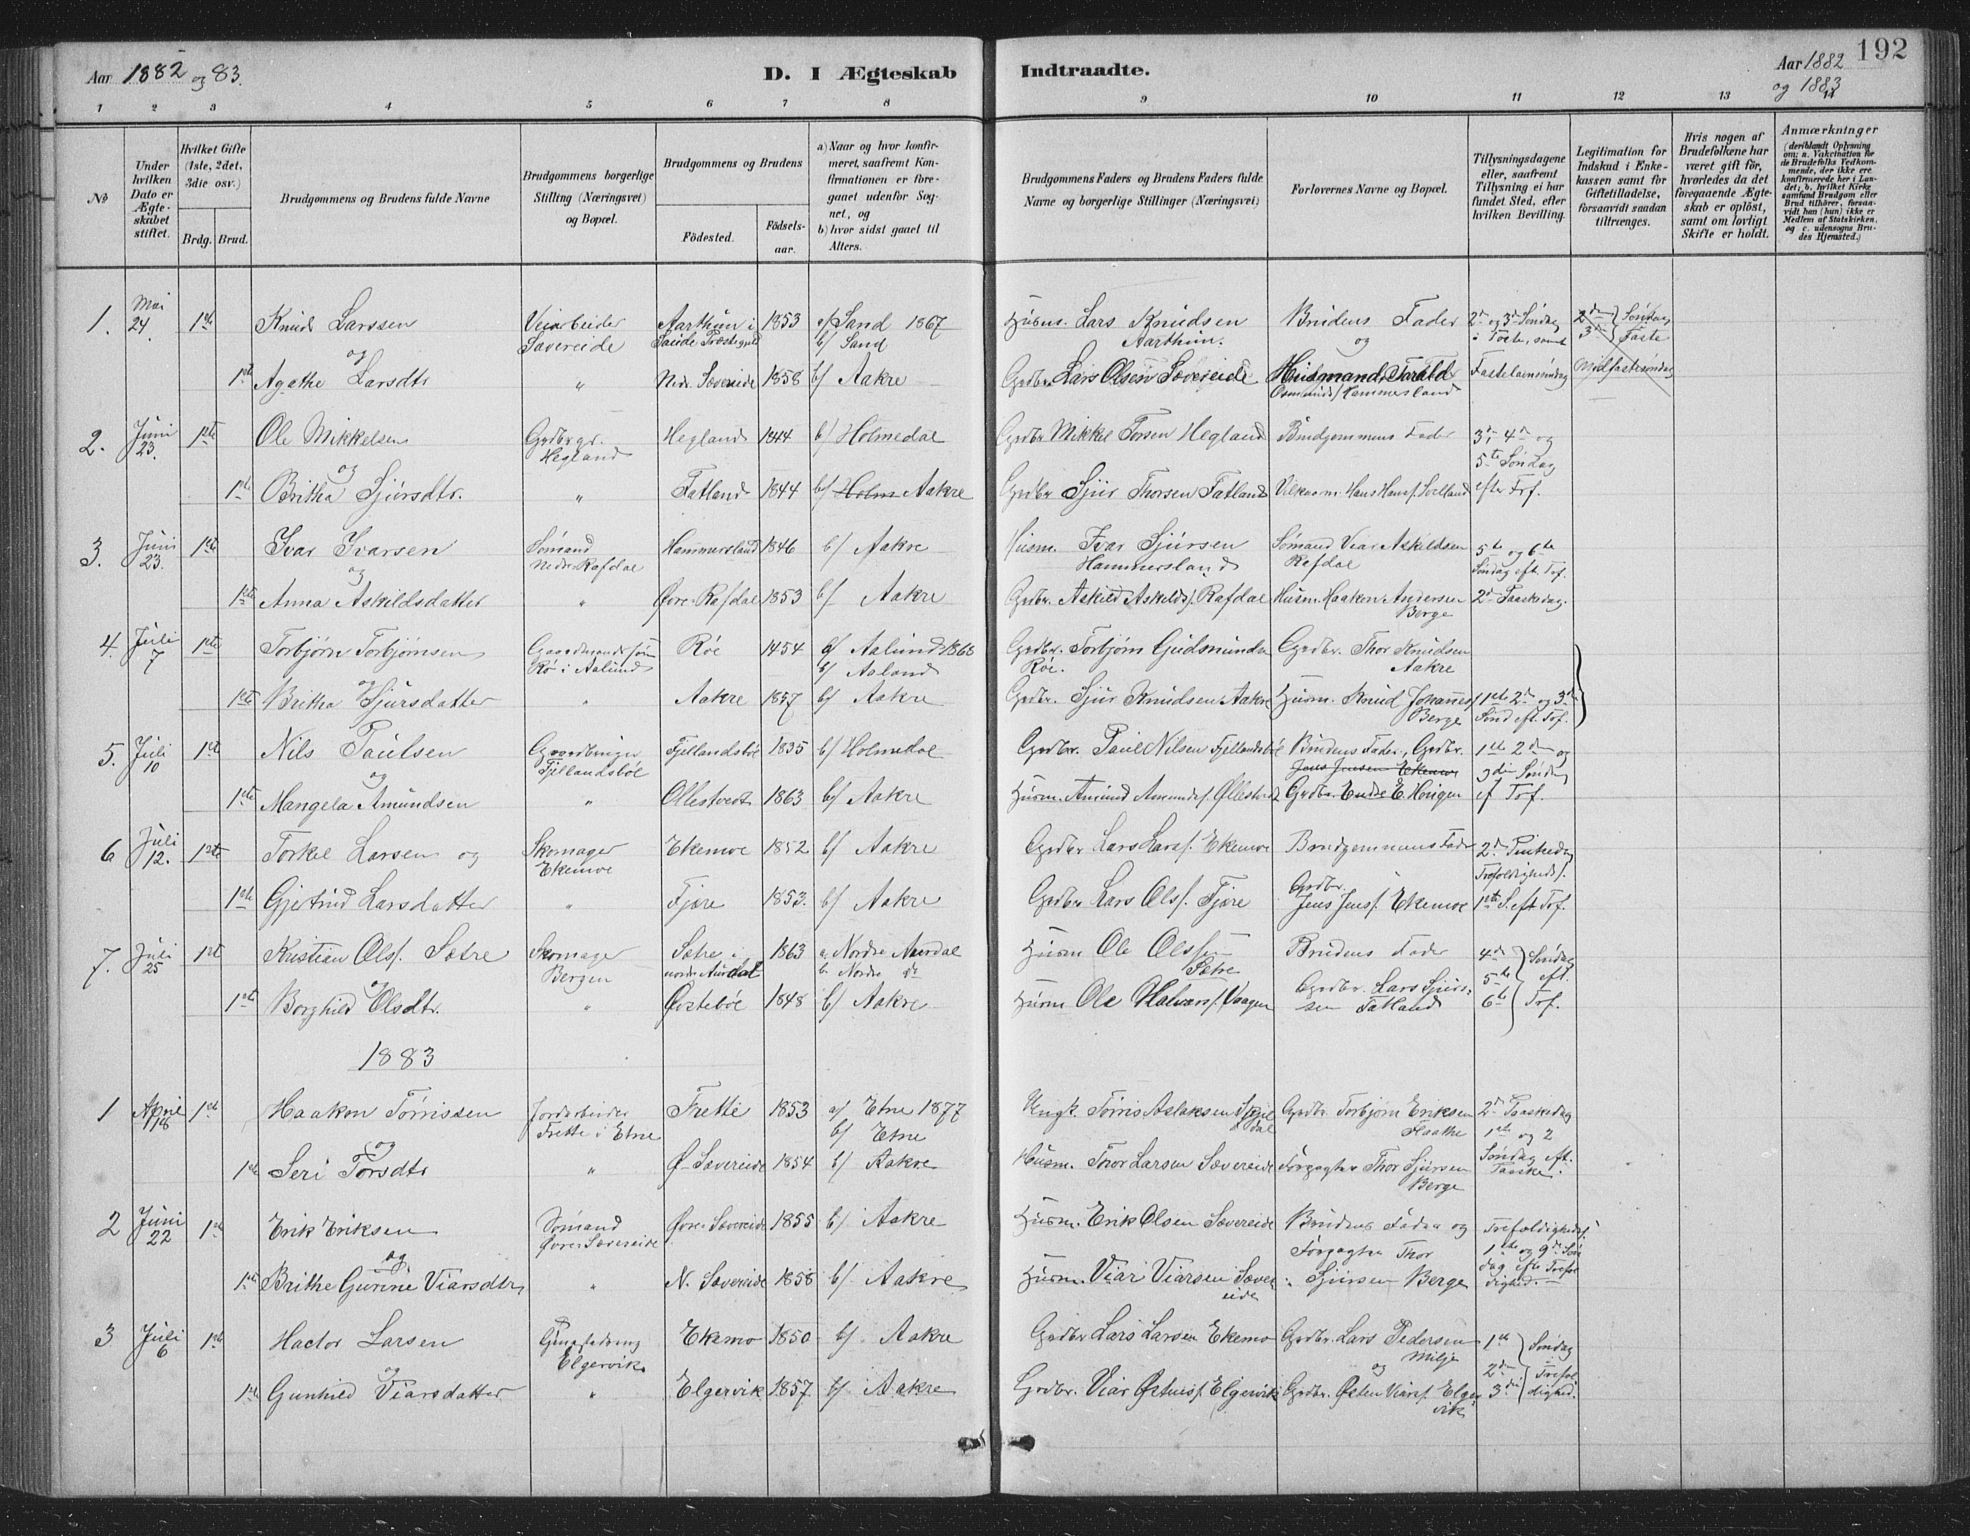 Aar 1882 og 83.
D. I Ægteskab
Indtraadte.
Aar 1882 og 1883
192
1 2 3 4 5 6 7 8 9 10 11 12 13 14
No
Under hvilken Dato er Ægteskabet stiftet.
Hvilket Gifte (1ste, 2det, 3die osv.)
Brdg. Brud.
Brudgommens og Brudens fulde Navne
Brudgommens borgerlige Stilling (Næringsvei) og Bopæl.
Brudgommens og Brudens
Födested.
Födsels-aar.
a) Naar og hvor konfirmeret, saafremt Konfirmationen er foregaaet udenfor Sognet, og
b) hvor sidst gaaet til Alters.
Brudgommens Faders og Brudens Faders fulde Navne og borgerlige Stillinger (Næringsvei)
Forlovernes Navne og Bopæl.
Tillysningsdagene eller, saafremt Tillysning ei har fundet Sted, efter hvilken Bevilling.
Legitimation for Indskud i Enkekassen samt for Giftetilladelse, forsaavidt saadan tiltrænges.
Hvis nogen af Brudefolkene har været gift för, hvorledes da det foregaaende Ægteskab er oplöst, samt om lovligt Skifte er holdt.
Anmærkninger (deriblandt Oplysning om: a. Vakcination for de Brudefolks Vedkommende, der ikke ere konfirmerede her i Landet; b. hvilket Kirkesamfund Brudgom eller Brud tilhörer, forsaavidt han (hun) ikke er Medlem af Statskirken, og c. udensogns Brudes Hjemsted.)
1. Mai 24. 1ste Knud Larssen Veiarbeider Sævereide Aarthun i 1853 a/ Sand 1867 b/ Sand Lars Knudsen Aarthun. Brudens Fader og 2den og 3die Søndag i Faste, samt
og
1ste Agathe Larsdtr " Nedr. Sævereide 1858 b/ Aakre Grdbr. Lars Olsen Sævereide Husmand Torald Osmunds/ Hammersland Fastelavnsøndag
2. Juni 23. 1ste Ole Mikkelsen Grdbrgr. Hegland Hegland 1844 b/ Holmedal Grdbr. Mikkel Torsen Hegland Brudgommens Fader 3die 4de og 5te Søndag
og
1ste Britha Sjursdtr. " Fatland 1844 b/ Holm Aakre Grdbr. Sjur Thorsen Fatland Hans Hans/ efter Tref.
3. Juni 23. 1ste Ivar Ivarsen Sømand Nedre Rafdal Hammersland 1846 b/ Aakre Husm. Ivar Sjursen Hammersland Sømand Viar Askildsen Rafdal 5te og 6te Søndag eft. Tref.
og
1ste Anna Askildsdatter " Øvre Rafdal 1853 b/ Aakre Grdbr. Askild Askilds/ Rafdal Husm. Haakon Andersen Berge 2den Paaskedag.
4. Juli 7 1ste Torbjørn Torbjørnsen Gaardmandssøn Rø i Aalund Røe 1454 a/ Aalund 1868 b/ Aalund Grdbr. Torbjørn Gudmunds Røe. Grdbr. Thor Knudsen Aakre
og
1ste Britha Sjursdatter " Aakre 1857 b/ Aakre Grdbr. Sjur Knudsen Aakre Husm. Knud Johannes/ Berge 1ste 2den og 3die Sønd. eft. Tref.
5. Juli 10 1ste Nils Paulsen Gaardbruger Fjellandsbøe Fjellandsbøe 1835 b/ Holmedal Grdbr. Paul Nilsen Fjellandsbøe Brudens Fader, Grdbr. Jens Jensen Ekemoe 1ste 2den og 3die Søndag
og
1ste Mangela Amundsen " Ollestvedt 1863 b/ Aakre Husm. Amund Amunds/ Øllestved Grdbr. Endre E. ef Tref.
6 Juli 12. 1ste Torkel Larsen og Skomager Ekemoe Ekemoe 1852 b/ Aakre Grdbr Lars Lars/ Ekemoe Brudgommens Fader 2den Pintsedag
1ste Gjertrud Larsdatter " Fjøre 1853. b/ Aakre Grdbr Lars Ols/ Fjøre Grdbr. Jens Jens/ Ekemoe 1ste S. eft. Tref.
7. Juli 25 1ste Kristian Ols/. Sætre Skomager Bergen Sætre i nordr. Aurdal 1863 a. Nordre Aurdal b. Nordre do Husm Ole Olssen Sætre Brudens Fader 4de 5te 6te Søndag eft. Tref.
og
1ste Borghild Olsdtr. " Øvstebøe 1848 b/ Aakre Husm. Ole Halvors/ Vaagen Grdbr. Lars Sjurssen Fatland
1883
1 April 18 1ste Haakon Tørrissen Jordarbeider Frette i Etne Frette 1853 a/ Etne 1877 b/ Etne Tørris Aslaksen Grdbr. Torbjørn Eriksen Flaathe 2den Paaskedag 1ste og 2
og
1ste Seri Torsdtr " Ø. Sævereide 1854 b/ Aakre Husm. Thor Larsen Sævereide Forpagter Thor Sjursen Berge Søndag eft. Paaske.
2 Juni 22 1ste Erik Eriksen Sømand Øvre Sævereide Øvre Sævereide 1855 b/ Aakre Husm. Erik Olsen Sævereide Brudens Fader og Forpagter Thor Trefoldigheds/. 1ste og
og
1ste Brithe Gurine Viarsdtr " N. Sævereide 1858 b/ Aakre Husm. Viar Viarsen Sævereide Sjursen Berge Søndag efter Trefoldighed.
3 Juli 6 1ste Hactor Larsen Elgervik Ekemo 1850 b/ Aakre Grdbr Lars Larsen Ekemo Grdbr. Lars Pedersen Milje 1ste 2den 3die Søndag eft. Trefoldighed.
og
1ste Gunhild Viarsdatter " Elgervik 1857 b/ Aakre Grdbr. Viar Østens/ Elgervik Grdbr. Østen Viars/ Elgervik